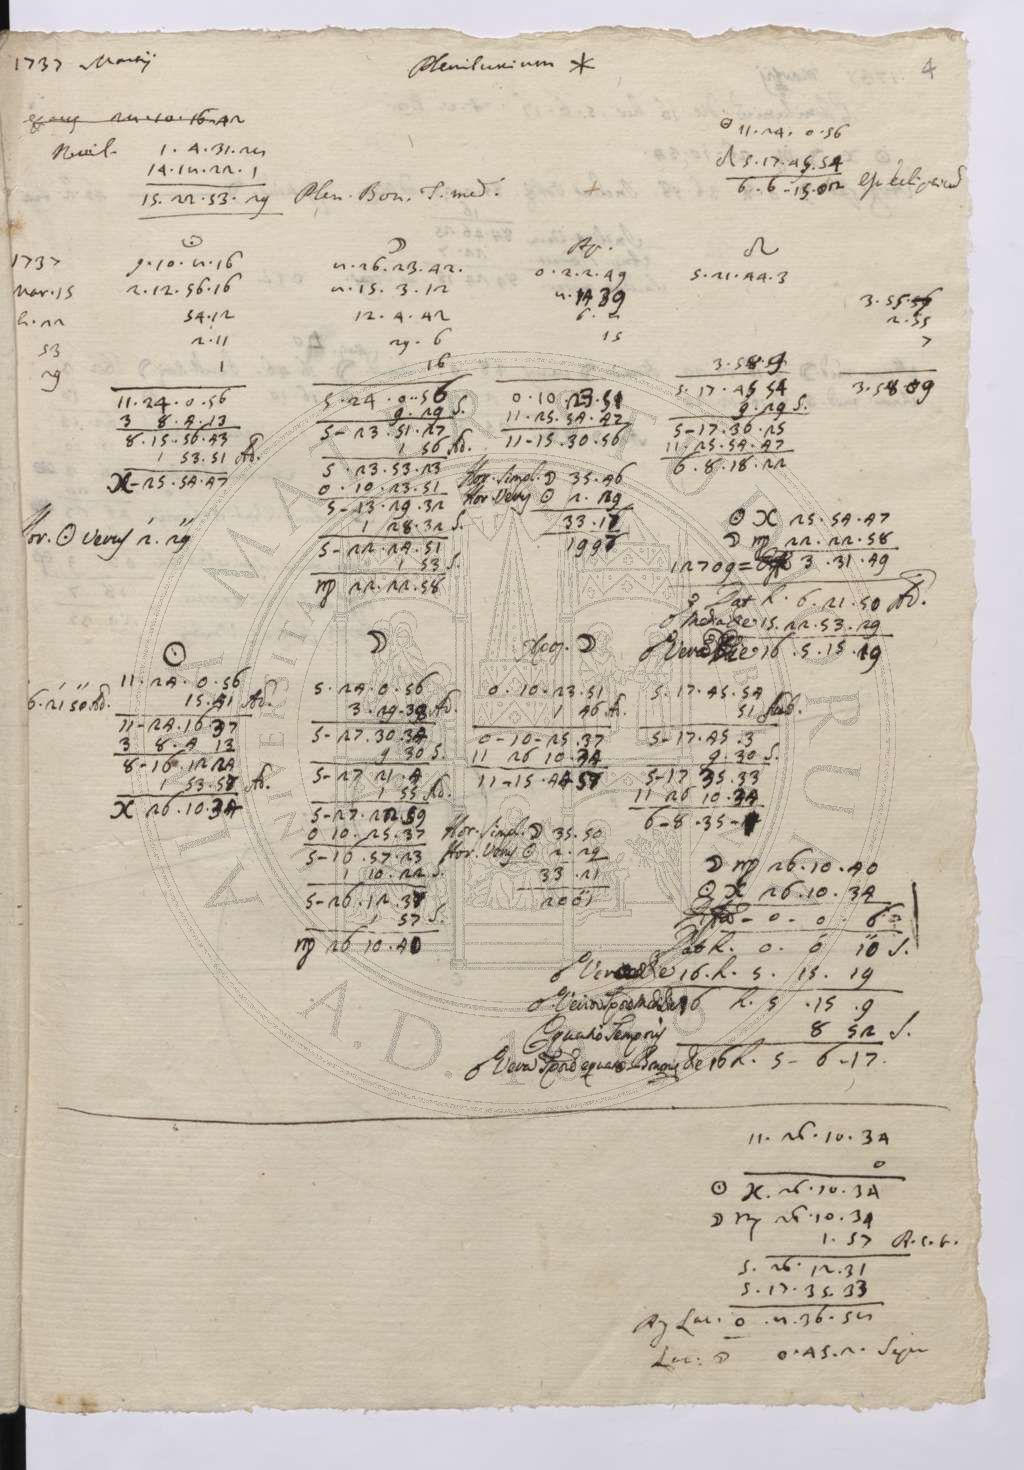 1737 Martij
Plenilunium * 4
22.10.16.42
Novil. 1.4.31.28
14.18.22.1
15.22.53.29 Plen. Bon. T. med.
☉ 11.24.0.56
☊ 5.17.45.54
6.6-15.02
☉ ☽ Ap. ☊
1737 9.10.8.16 8.26.23.42. 0.2.2.49 5.21.44.3
Mar. 15 2.12.56.16 8.15.3.12 8.14.39 3.55
h. 22 54.12 12.4.42 6.8 2.55
53 2.11 29.6 15 7
29 1 16 3.58.9
11.24.0.56 5.24.0.56 0.10.23.51 5.17.45.54 3.58.09
3 8.4.13 9.29 S. 11.25.54.47 9.29 S.
8.15.56.43 5-23.51.27 11-15.30.56 5-17.36.25
1 53.51 Ad. 1 56 Ad. 11-25.54.47
♓-25.54.47 5.23.53.23 Hor. simpl. ☽ 35.46 6.8.18.22
0.10.23.51 Hor. Verus ☉ 2.29
5-13.29.32 33.17
1 28.32 S. 1997
Hor. ☉ verus 2.29
5-22.24.51
1 53 S.
♍ 22.22.58
☉ ♓ 25.54.47
☽ ♍ 22.22.58
12709= 3.31.49
Dat h. 6.21.50 Ad.
☍ Media die 15.22.53.29
☍ Vera die 16.5.15.19
☉ ☽ ☽
11.24.0.56 5.24.0.56 0.10.23.51 5.17.45.54
6.21 50 Ad. 15.41 Ad. 3.29.38 Ad. 1 46 Ad. 51 Sub.
11-24.16.37 5-27.30.34 0-10-25.37 5-17.45.3
3 8.4 13 9 30 S. 11 26 10.34 9.30 S.
8-16.12.24 5-27 21.4 11-15.44 57 5-17 35.33
1 53.57 Ad. 1 55 Ad. 11 26 10.34
♓ 26.10.34 5-27.22.59 6-8.35-
0 10.25.37 Hor. simpl. ☽ 35.50
5-10.57.23 Hor. Verus ☉ 2.29
1 10.22 S. 33.21
5-26.12.37 2001
1 57 S.
♍ 26 10.40
☽ ♍ 26.10.40
☉ ♓ 26.10.34
-0-0.6
Dat h. 0.0 10 S.
☍ Vera die 16.h. 5. 15. 19
16 h. 5.15.9
Equatio Temporis 8 52 S.
die 16 h. 5-6-17.
11.26.10.34
0
☉ ♓. 26.10.34
☽ ♍ 26.10.34
1.57
5.26.12.31
5.17.35.33
0.8.36.58
Lat. ☽ 0.45.2.